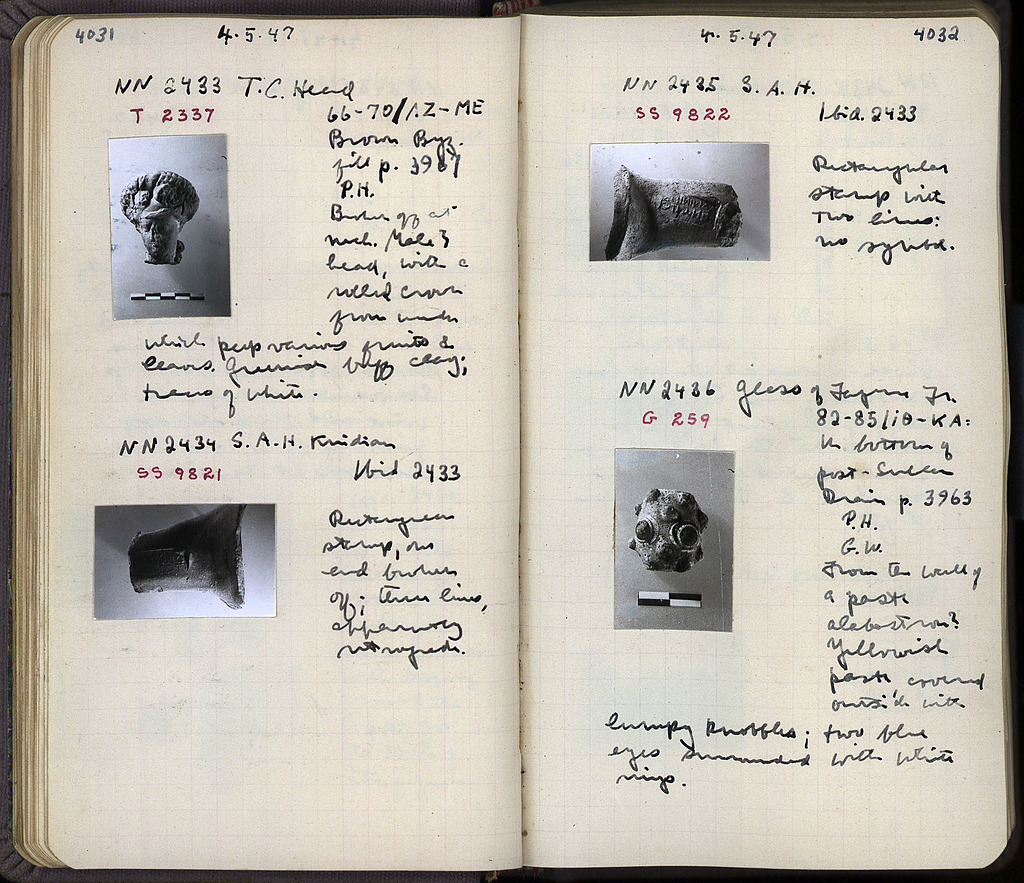 4031 4.5.47
NN 2433 T.C. Head
T 2337
66-70/ΛZ-ME
Brown Byz.
fill p. 3987
P.H.
Broken off at
neck. Male?
head, with a
rolled crown
from under
which peep various fruits &
leaves. Greenish buff clay;
traces of white.
NN 2434 S.A.H. Knidian
SS 9821
Ibid 2433
Rectangular
stamp, one
end broken
off; three lines,
apparently
retrograde.
4.5.47 4032
NN 2435 S.A.H.
SS 9822
Ibid. 2433
Rectangular
stamp with
two lines:
no symbol.
NN 2436 Glass of Fr.
G 259
82-85/ΙΘ-ΚΑ:
in bottom of
post-Sullan
Drain p. 3963
P.H.
G.W.
From the wall of
a paste
alabastron?
Yellowish
paste covered
outside with
lumpy knobbles; two blue
eyes surrounded with white
rings.